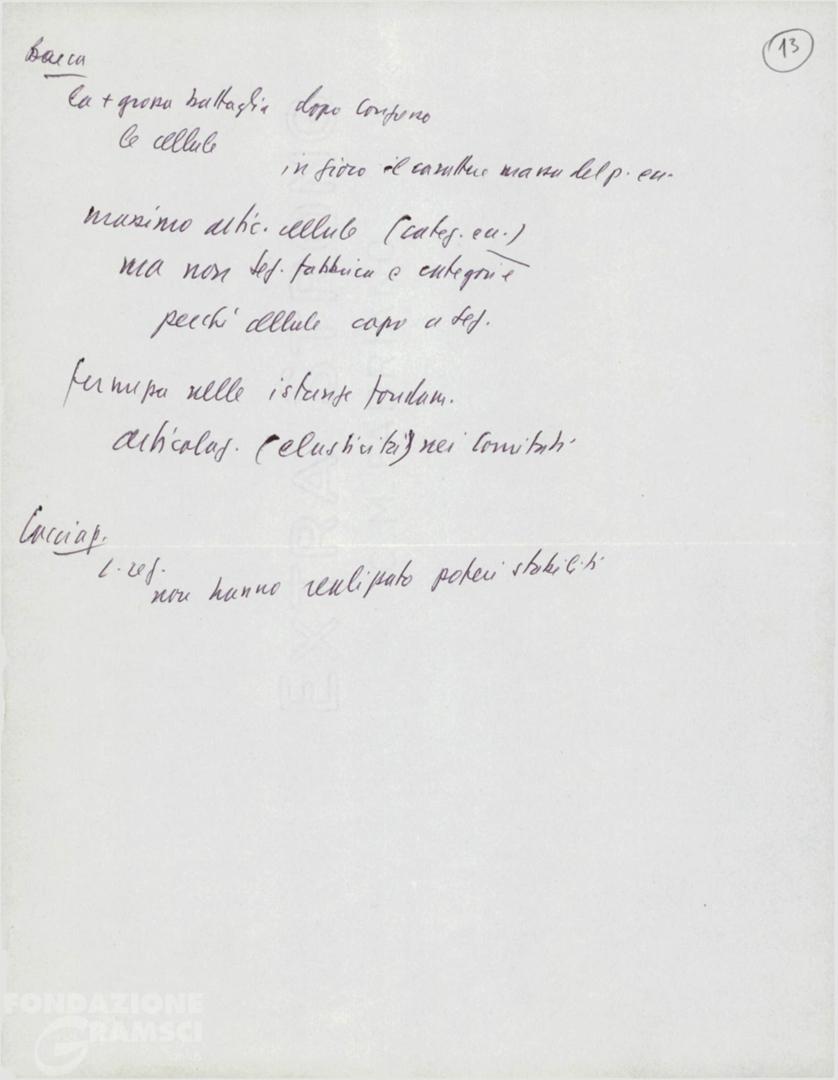 13
Bacca
la + grossa battaglia dopo Congresso
le cellule
in gioco il carattere massa del p. ecc.
massimo artic. cellule (categ. ecc.)
ma non sez. fabbrica e categorie
perché cellule capo a sez.
fermezza nelle istanze fondam.
articolaz. (elasticità) nei Comitati
Cacciap.
C. reg.
non hanno realizzato poteri stabiliti
EXTRA STRONG
FONDAZIONE
GRAMSCI